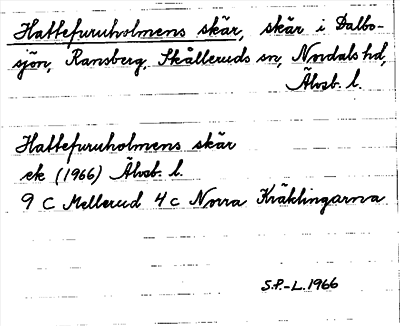 Hattefuruholmens skär, skär i Dalbo-
sjön, Ransberg, Skålleruds sn, Nordals hd,
Älvsb. l.
Hattefuruholmens skär
ek (1966) Älvsb. l.
9 C Mellerud 4 c Norra Kräklingarna
S.P.-L. 1966